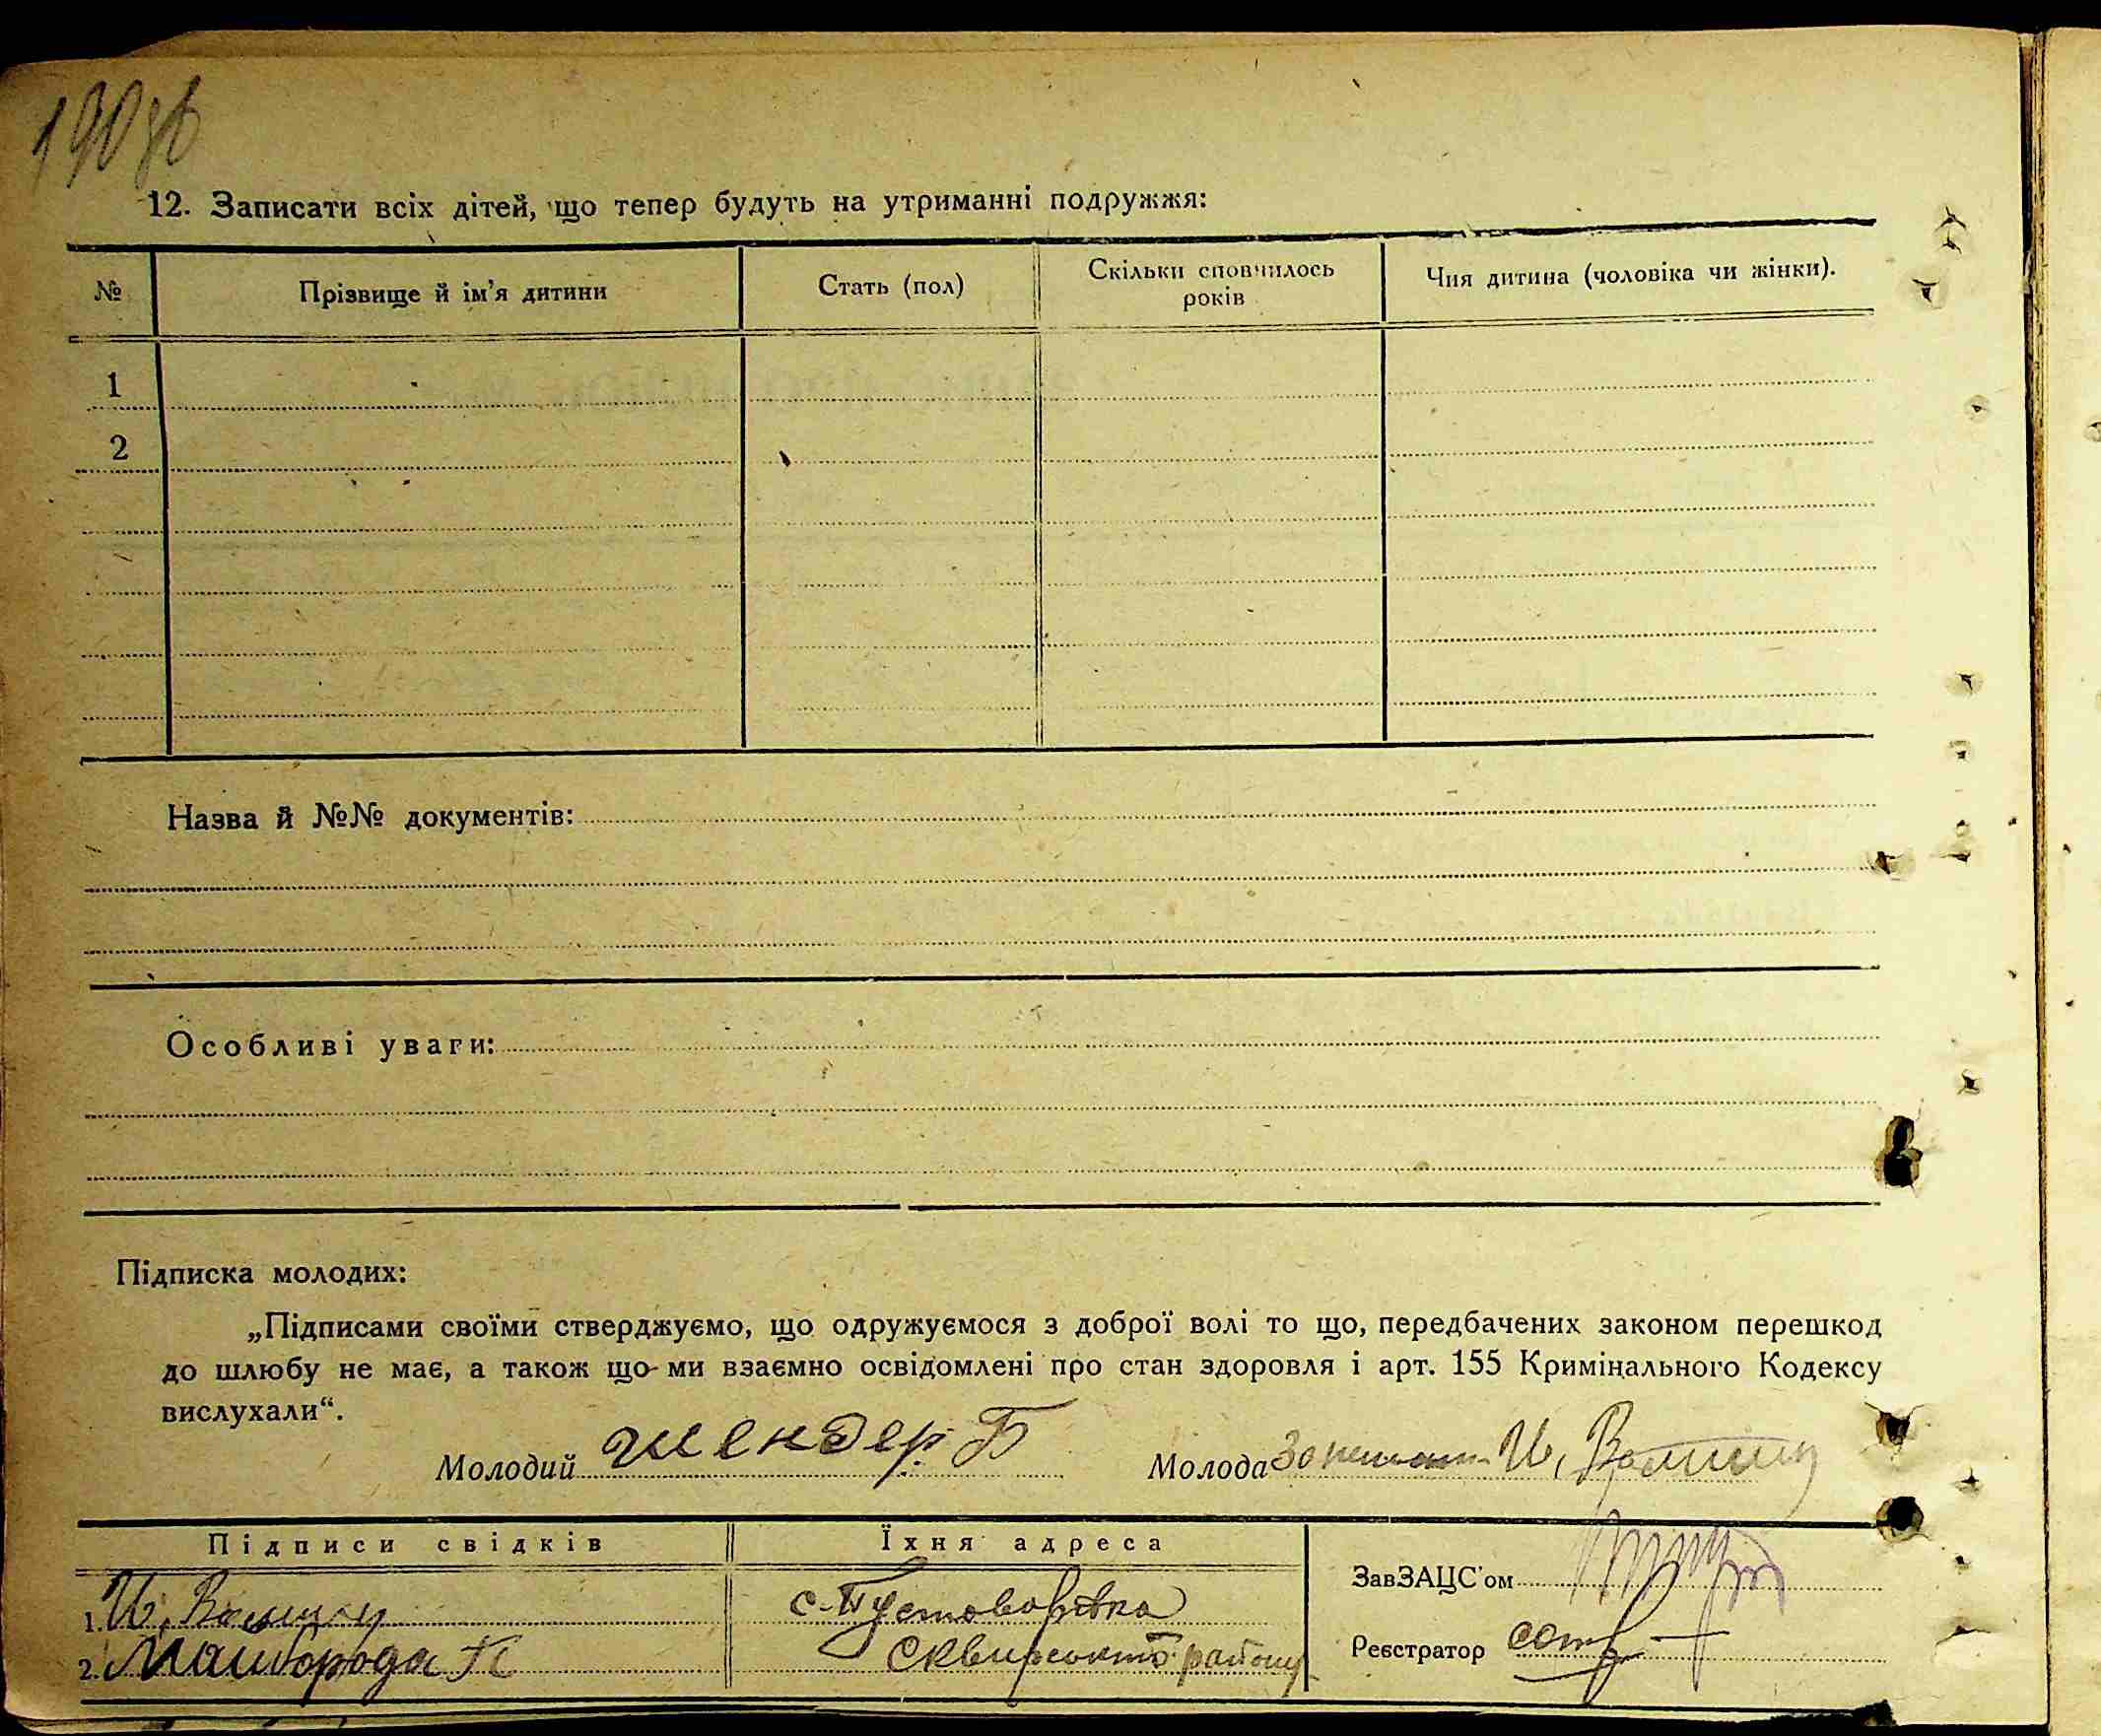 190зв
12. Записати всіх дітей, що тепер будуть на утриманні подружжя:
№ Прізвище й ім'я дитини Стать (пол) Скільки сповнилось років Чия дитина (чоловіка чи жінки).
1
2
Назва й №№ документів:
Особливі уваги:
Підписка молодих:
„Підписами своїми стверджуємо, що одружуємося з доброї волі то що, передбачених законом перешкод
до шлюбу не має, а також що ми взаємно освідомлені про стан здоровля і арт. 155 Кримінального Кодексу
вислухали“.
Молодий Шендер Б Молода И,
Підписи свідків Їхня адреса
ЗавЗАЦС'ом
1. И, с. Пустоваровка
Реєстратор
2. Майборода К Сквирського району